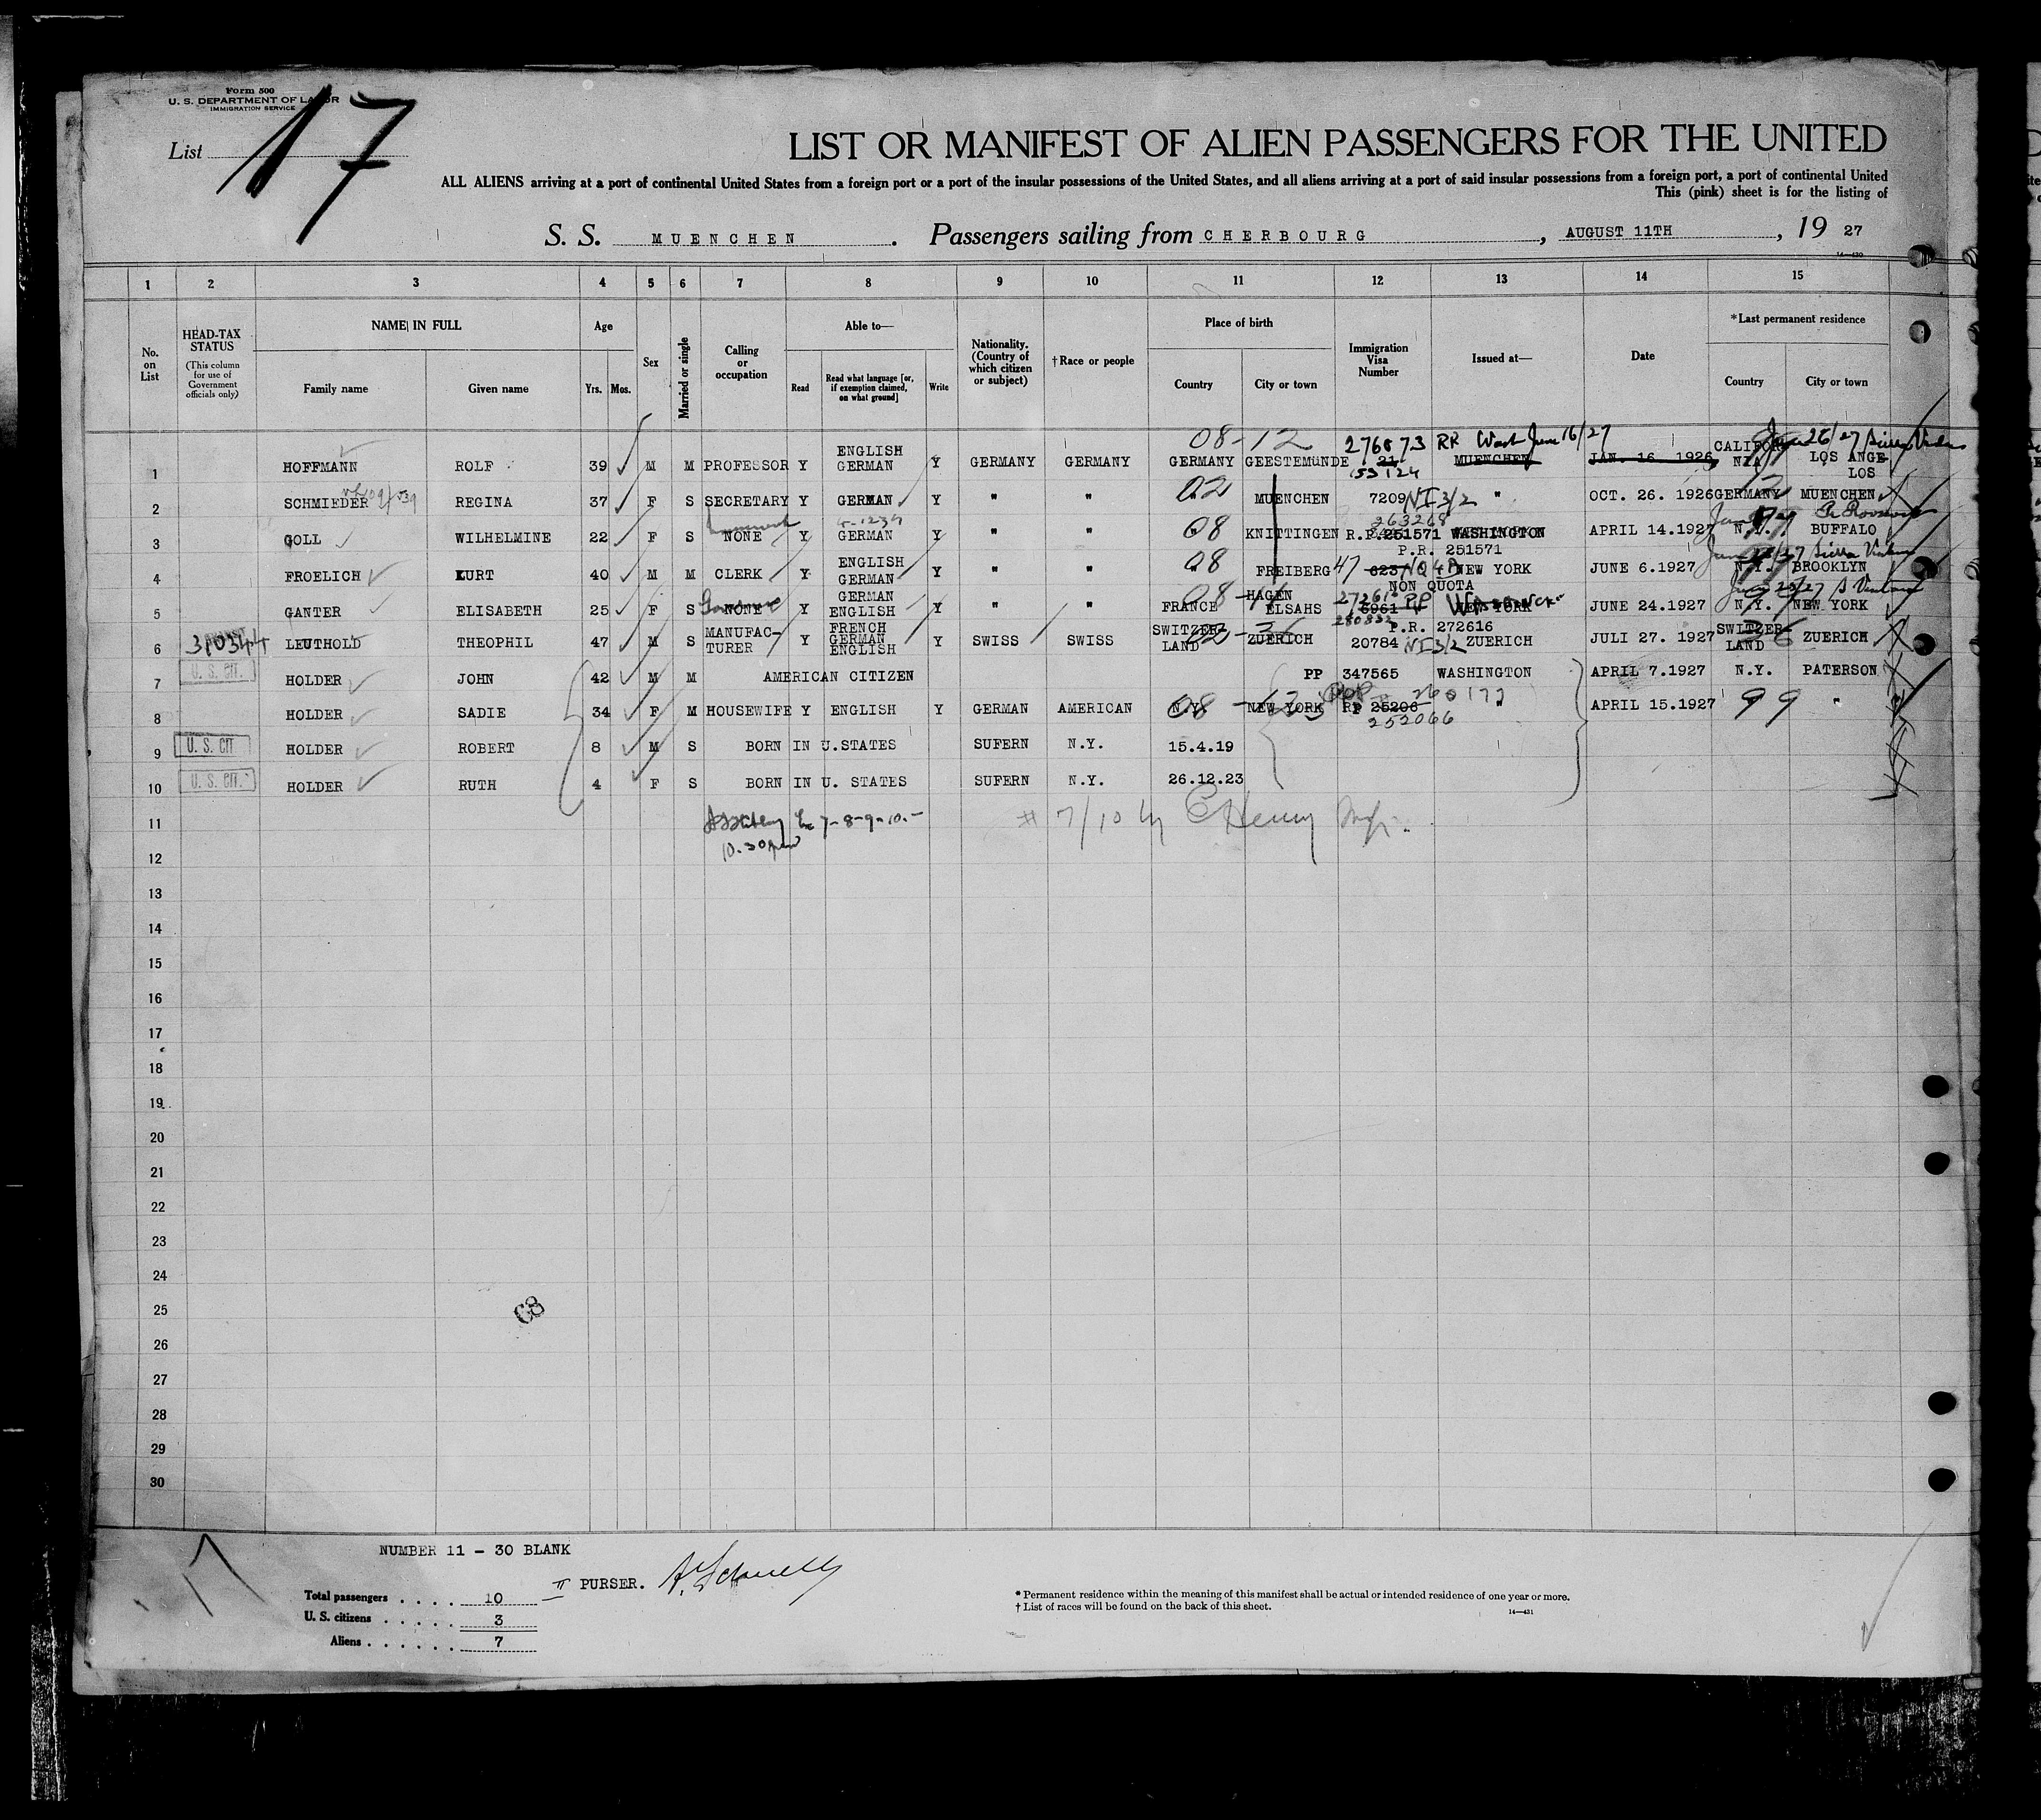 Form 500
U. S. DEPARTMENT OF LABOR
IMMIGRATION SERVICE
List 17
LIST OR MANIFEST OF ALIEN PASSENGERS FOR THE UNITED
ALL ALIENS arriving at a port of continental United States from a foreign port or a port of the insular possessions of the United States, and all aliens arriving at a port of said insular possessions from a foreign port, a port of continental United
This (pink) sheet is for the listing of
S. S. MUENCHEN. Passengers sailing from CHERBOURG, AUGUST 11TH, 19 27
14—430
1 2 3 4 5 6 7 8 9 10 11 12 13 14 15
No. on List
HEAD-TAX STATUS (This column for use of Government officials only)
NAME IN FULL
Family name Given name
Age
Yrs. Mos.
Sex
Married or single
Calling or occupation
Able to—
Read Read what language [or, if exemption claimed, on what ground] Write
Nationality. (Country of which citizen or subject)
†Race or people
Place of birth
Country City or town
Immigration Visa Number
Issued at—
Date
*Last permanent residence
Country City or town
08-12 276873 RR Wash June 16/27
1 HOFFMANN ROLF 39 M M PROFESSOR Y ENGLISH GERMAN Y GERMANY GERMANY GERMANY GEESTEMÜNDE 21 153124 MUENCHEN JAN. 16. 1926 CALIFORNIA LOS ANGELOS
2 SCHMIEDER REGINA 37 F S SECRETARY Y GERMAN Y " " 02 MUENCHEN 7209 NI 3/2 " OCT. 26. 1926 GERMANY MUENCHEN
3 GOLL WILHELMINE 22 F S NONE Y GERMAN Y " " 08 KNITTINGEN 263268 R.P. 251571 WASHINGTON APRIL 14.1927 N.Y. BUFFALO
P.R. 251571
4 FROELICH KURT 40 M M CLERK Y ENGLISH GERMAN Y " " 08 FREIBERG 47 623 NQ 4B NEW YORK JUNE 6.1927 N.Y. BROOKLYN
NON QUOTA
5 GANTER ELISABETH 25 F S NONE Y GERMAN ENGLISH Y " " FRANCE HAGEN ELSAHS 6961 NEW YORK JUNE 24.1927 N.Y. NEW YORK
P.R. 272616
6 31034 LEUTHOLD THEOPHIL 47 M S MANUFACTURER Y FRENCH GERMAN ENGLISH Y SWISS SWISS SWITZERLAND ZUERICH 20784 NI 3/2 ZUERICH JULI 27. 1927 SWITZERLAND ZUERICH
7 U. S. CIT. HOLDER JOHN 42 M M AMERICAN CITIZEN PP 347565 WASHINGTON APRIL 7.1927 N.Y. PATERSON
8 HOLDER SADIE 34 F M HOUSEWIFE Y ENGLISH Y GERMAN AMERICAN N.Y. NEW YORK RP 25206 260177 252066 " APRIL 15.1927 99 "
9 U. S. CIT HOLDER ROBERT 8 M S BORN IN U.STATES SUFERN N.Y. 15.4.19
10 U. S. CIT. HOLDER RUTH 4 F S BORN IN U. STATES SUFERN N.Y. 26.12.23
11 7-8-9-10.- # 7/10 by Henry
12 10.30
13
14
15
16
17
18
19
20
21
22
23
24
25
26
27
28
29
30
NUMBER 11 - 30 BLANK
II PURSER.
Total passengers . . . . 10
U. S. citizens . . . . . 3
Aliens . . . . . . 7
* Permanent residence within the meaning of this manifest shall be actual or intended residence of one year or more.
† List of races will be found on the back of this sheet.
14—431